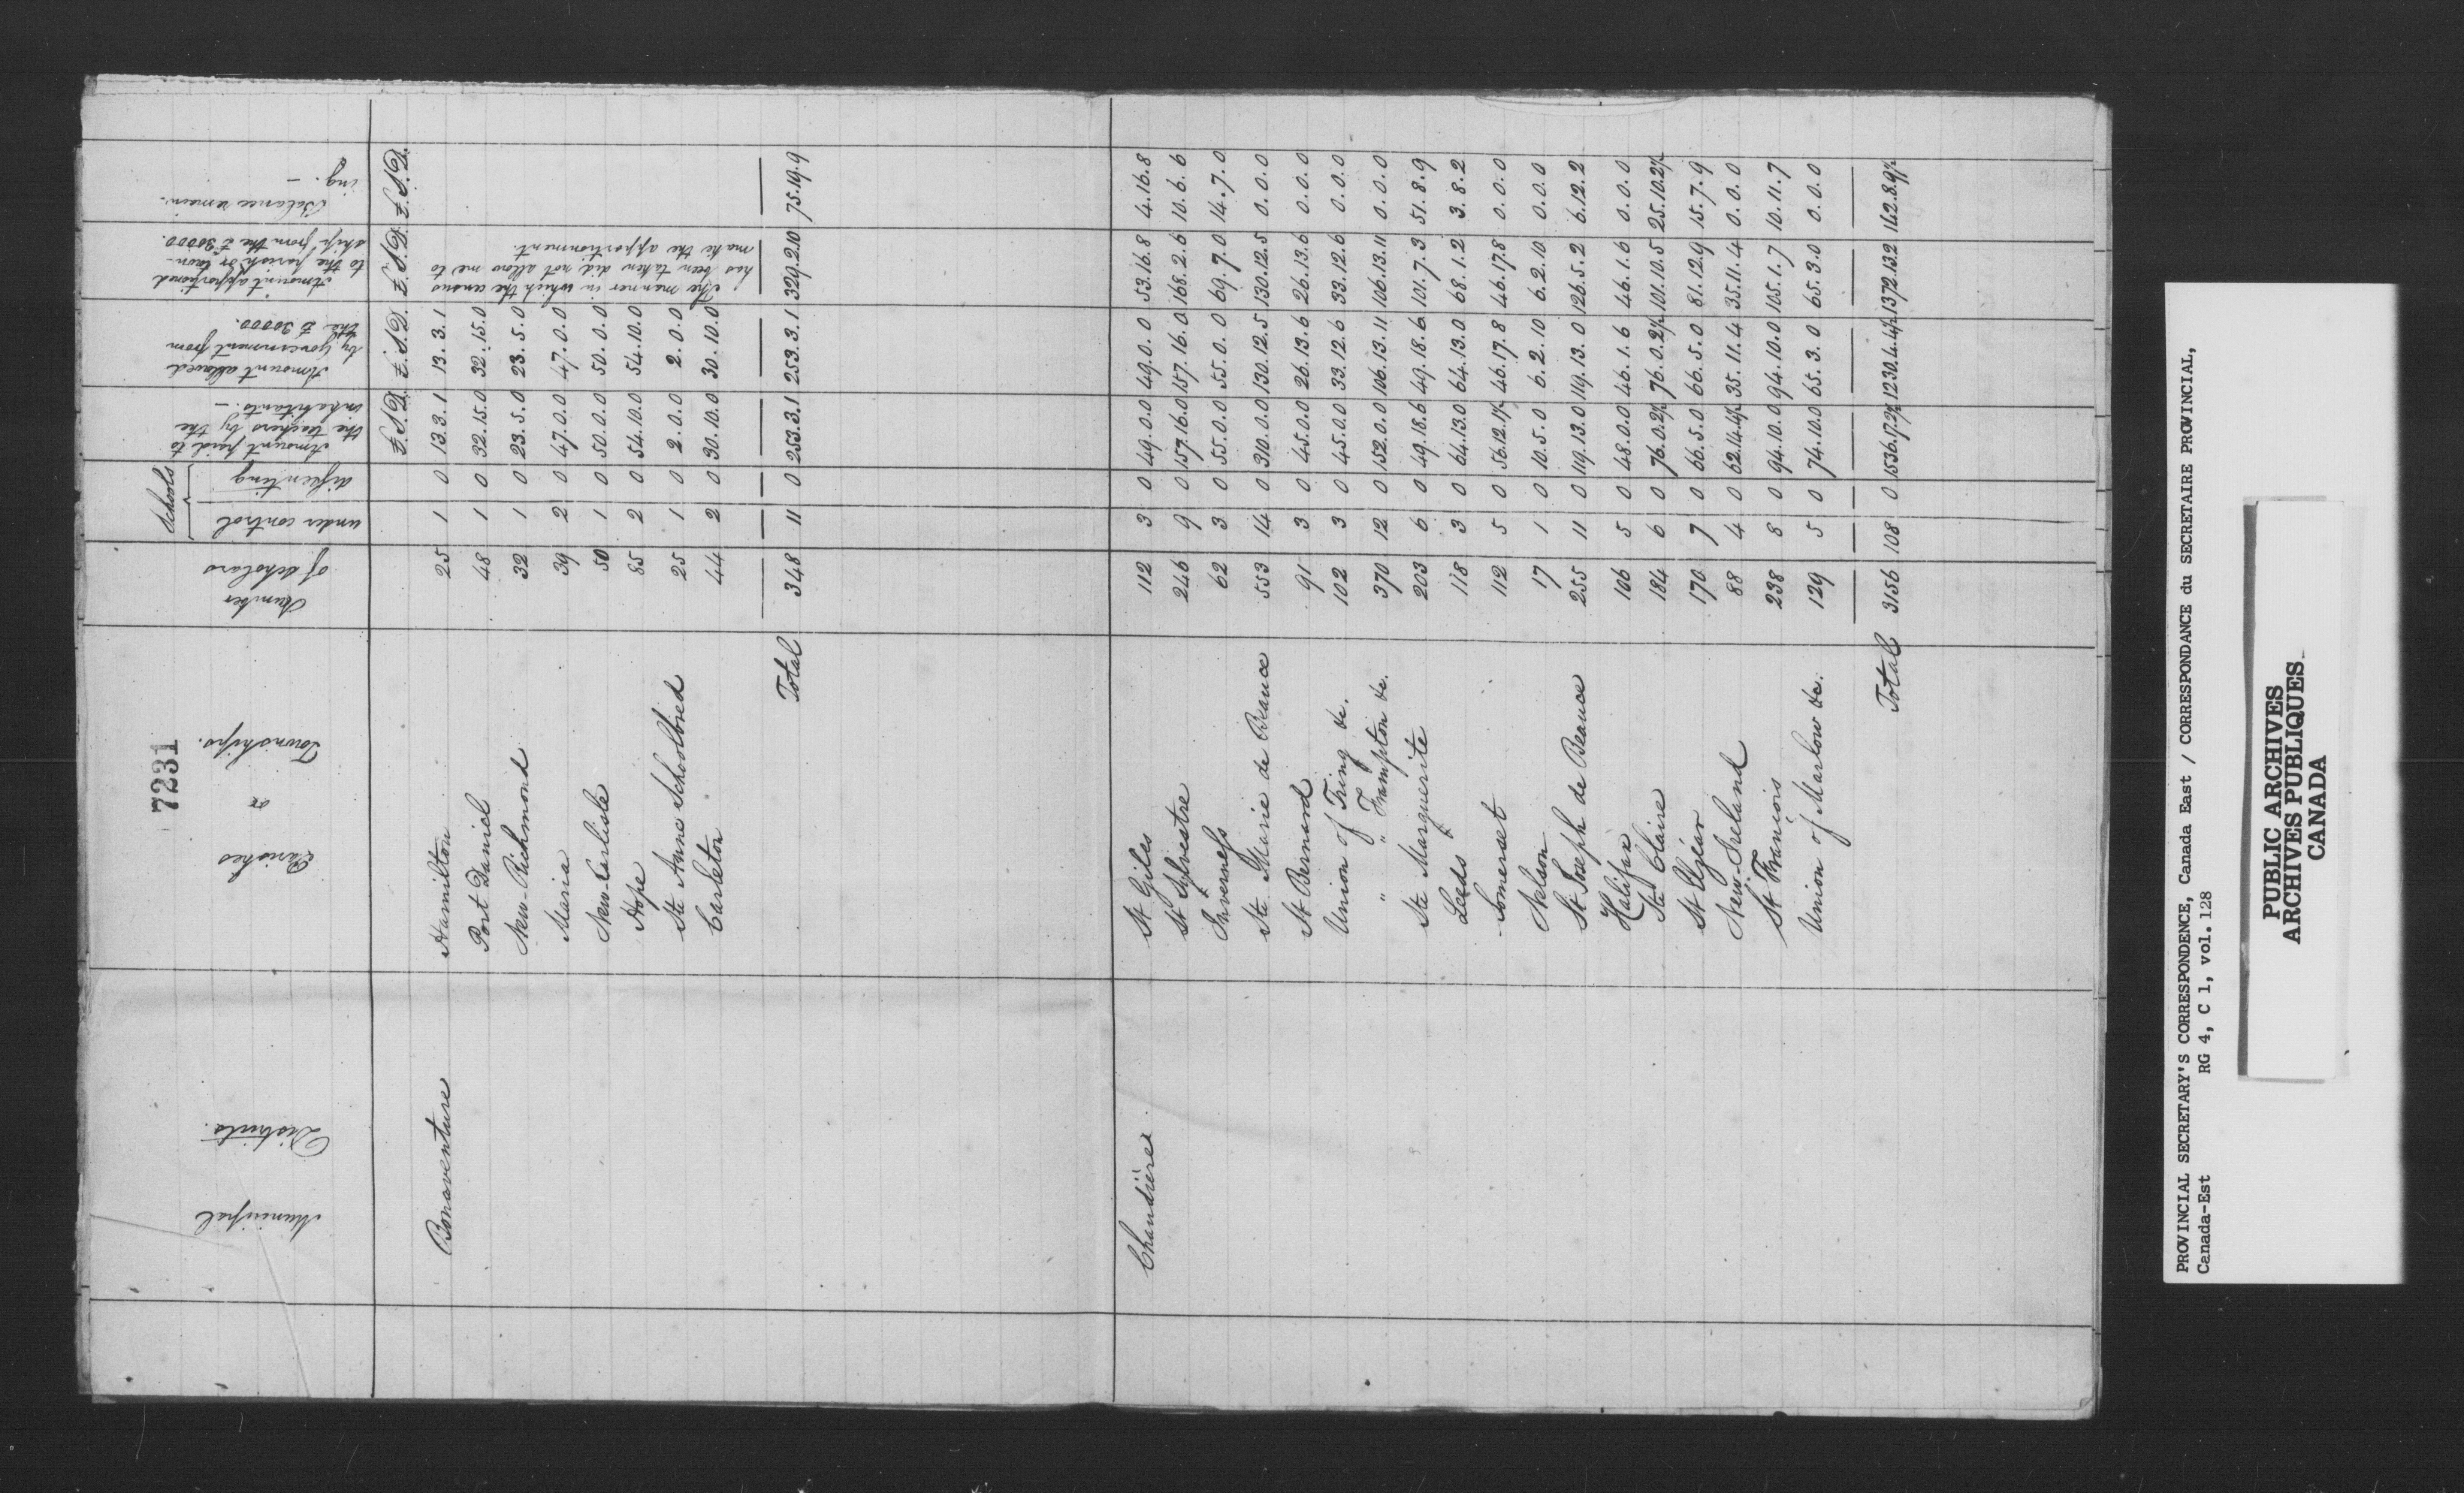 7231
Municipal Districts. Parishes or Townships. Number of scholars Schools under control dissenting Amount paid to the teachers by the inhabitants. — Amount allowed by Government from the £30000. Amount apportioned to the parish or town-ship from the £30000. Balance remain-ing. —
£. S. D. £. S. D. £. S. D. £. S. D.
Bonaventure Hamilton 25 1 0 13. 3. 1 13. 3. 1
Port Daniel 48 1 0 32. 15. 0 32. 15. 0
New-Richmond 32 1 0 23. 5. 0 23. 5. 0
Maria 39 2 0 47. 0. 0 47. 0. 0
New-Carlisle 50 1 0 50. 0. 0 50. 0. 0
Hope 85 2 0 54. 10. 0 54. 10. 0
Ste Anne Schoolbred 25 1 0 2. 0. 0 2. 0. 0
Carleton 44 2 0 30. 10. 0 30. 10. 0
The manner in which the census
has been taken did not allow me to
make the apportionment.
Total 348 11 0 253. 3. 1 253. 3. 1 329. 2. 10 75. 19. 9
Chaudière St Giles 112 3 0 49. 0. 0 49. 0. 0 53. 16. 8 4. 16. 8
St Sylvestre 246 9 0 157. 16. 0 157. 16. 0 168. 2. 6 10. 6. 6
Inverness 62 3 0 55. 0. 0 55. 0. 0 69. 7. 0 14. 7. 0
Ste Marie de Beauce 553 14 0 310. 0. 0 130. 12. 5 130. 12. 5 0. 0. 0
St Bernard 91 3 0 45. 0. 0 26. 13. 6 26. 13. 6 0. 0. 0
Union of Tring &c. 102 3 0 45. 0. 0 33. 12. 6 33. 12. 6 0. 0. 0
" " Frampton &c. 370 12 0 152. 0. 0 106. 13. 11 106. 13. 11 0. 0. 0
Ste Marguerite 203 6 0 49. 18. 6 49. 18. 6 101. 7. 3 51. 8. 9
Leeds 118 3 0 64. 13. 0 64. 13. 0 68. 1. 2 3. 8. 2
Somerset 112 5 0 56. 12. 1½ 46. 17. 8 46. 17. 8 0. 0. 0
Nelson 17 1 0 10. 5. 0 6. 2. 10 6. 2. 10 0. 0. 0
St Joseph de Beauce 255 11 0 119. 13. 0 119. 13. 0 126. 5. 2 6. 12. 2
Halifax 106 5 0 48. 0. 0 46. 1. 6 46. 1. 6 0. 0. 0
Ste Claire 184 6 0 76. 0. 2½ 76. 0. 2½ 101. 10. 5 25. 10. 2½
St Elzéar 170 7 0 66. 5. 0 66. 5. 0 81. 12. 9 15. 7. 9
New-Ireland 88 4 0 62. 14. 4½ 35. 11. 4 35. 11. 4 0. 0. 0
St François 238 8 0 94. 10. 0 94. 10. 0 105. 1. 7 10. 11. 7
Union of Marlow &c. 129 5 0 74. 10. 0 65. 3. 0 65. 3. 0 0. 0. 0
Total 3156 108 0 1536. 17. 2½ 1230. 4. 4½ 1372. 13. 2 142. 8. 9½
PROVINCIAL SECRETARY'S CORRESPONDENCE, Canada East / CORRESPONDANCE du SECRETAIRE PROVINCIAL,
Canada-Est RG 4, C 1, vol. 128
PUBLIC ARCHIVES
ARCHIVES PUBLIQUES
CANADA